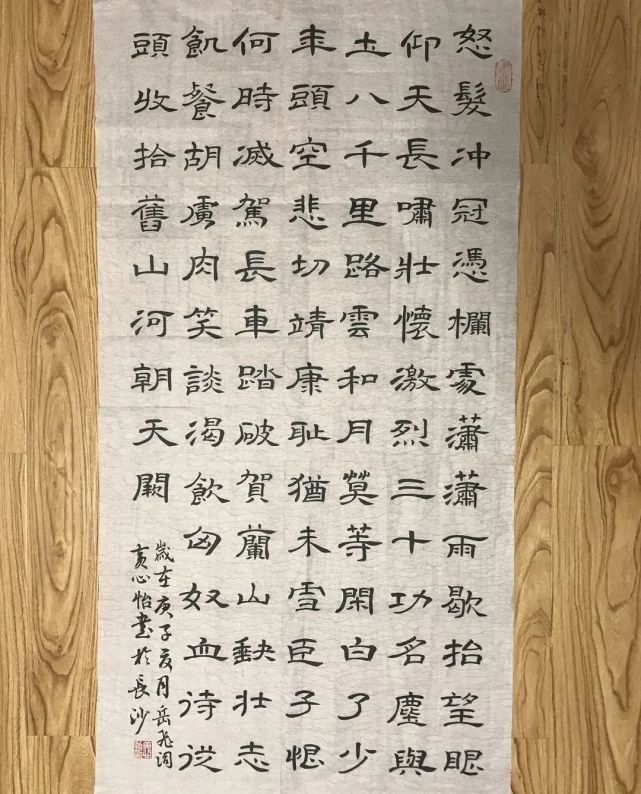 怒髮冲冠憑欄處瀟瀟雨歇抬望眼
仰天長嘯壯懷激烈三十功名塵與
土八千里路雲和月莫等閑白了少
年頭空悲切靖康耻猶未雪臣子恨
何時滅駕長車踏破賀蘭山缺壮志
飢餐胡虜肉笑談渴飲匈奴血待從
頭收拾舊山河朝天闕
歲在庚子夏月岳飛詞
黄心怡書於長沙